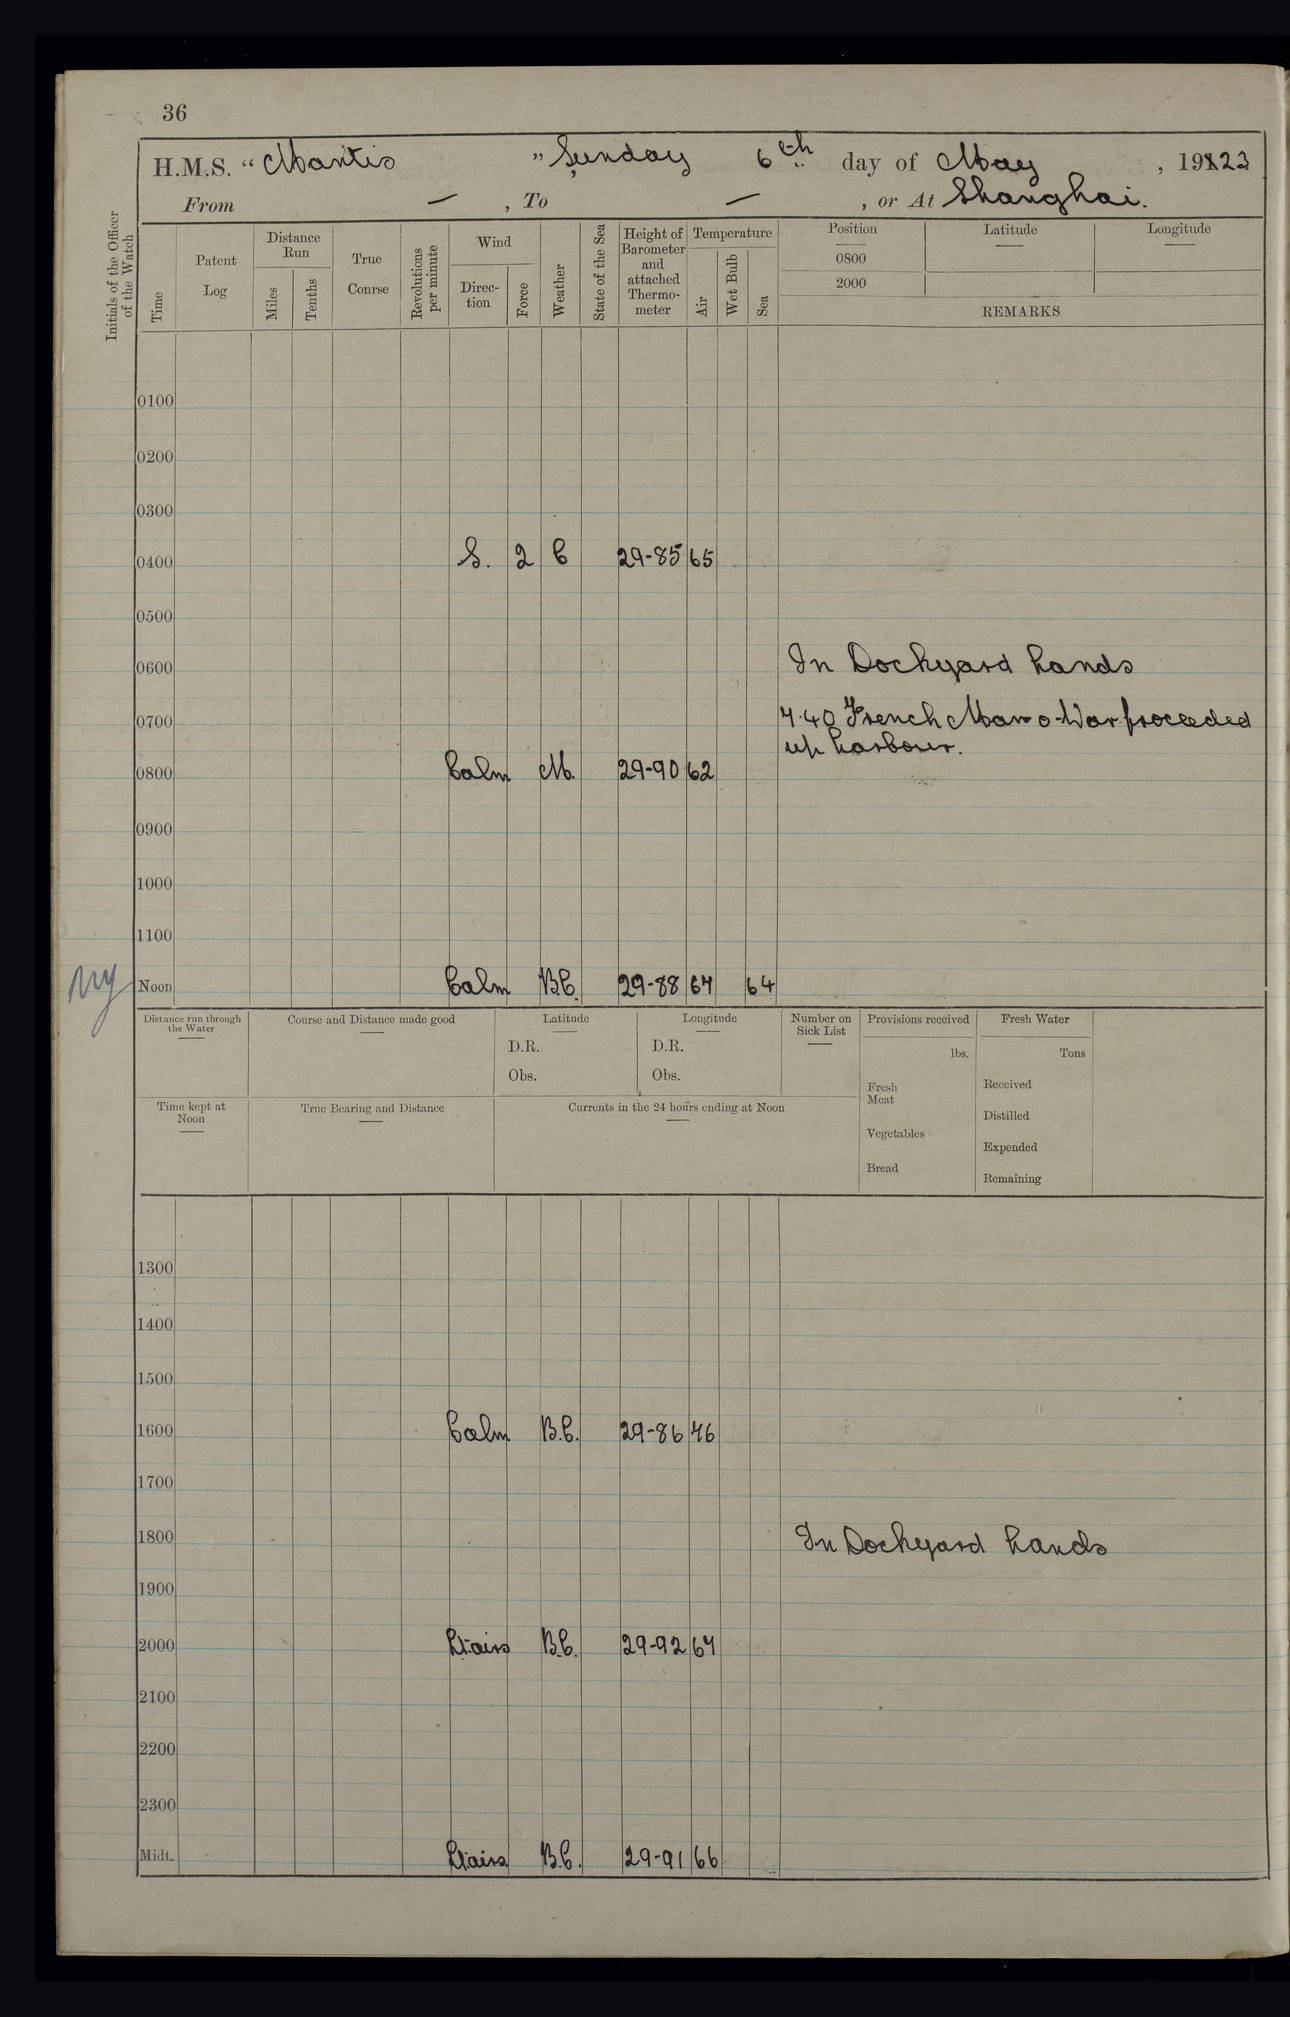 36
H.M.S. "Mantis" Sunday 6th day of May, 1923
From — , To — , or At Shanghai.
Initials of the Officer of the Watch
Time
Patent Log
Distance Run
Miles
Tenths
True Conrse
Revolutions per minute
Wind
Direction
Force
Weather
State of the Sea
Height of Barometer and attached Thermometer
Temperature
Air
Wet Bulb
Sea
Position Latitude Longitude
0800
2000
REMARKS
0100
0200
0300
0400 S. 2 C 29-85 65
0500
0600 In Dockyard hands
0700 7.40 French Man-o-War proceeded
up harbour.
0800 Calm M. 29-90 62
0900
1000
1100
Noon Calm B.C. 29-88 67 64
Distance run through the Water
Course and Distance made good
Latitude
D.R.
Obs.
Longitude
D.R.
Obs.
Number on Sick List
Provisions received
lbs.
Fresh Meat
Vegetables
Bread
Fresh Water
Tons
Received
Distilled
Expended
Remaining
Time kept at Noon
True Bearing and Distance
Currents in the 24 hours ending at Noon
1300
1400
1500
1600 Calm B.C. 29-86 76
1700
1800 In Dockyard hands
1900
2000 Lt airs B.C. 29-92 67
2100
2200
2300
Midt. Lt airs B.C. 29-91 66